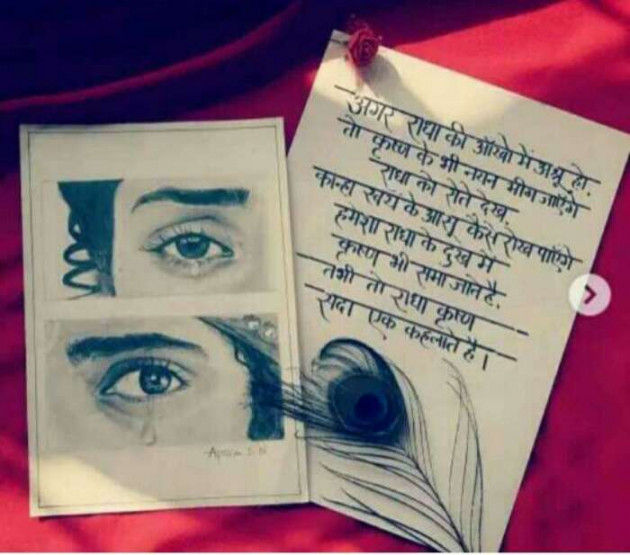 अगर राधा की आँखो में अश्रू हो,
तो कृष्ण के भी नयन भीग जाएँगे
राधा को रोते देख
कान्हा स्वयं के आशू कैसे रोख पाएँगे
हमेशा राधा के दुख में
कृष्ण भी समा जाते है.
तभी तो राधा कृष्ण
सदा एक कहलाते है।